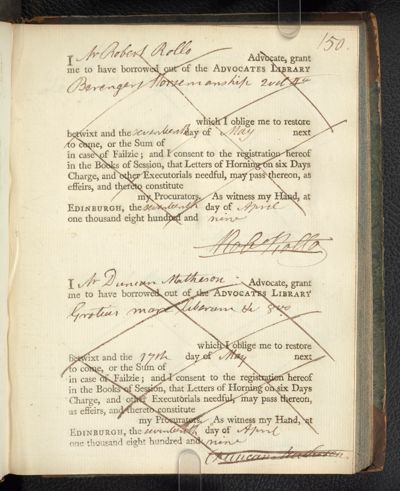 150.
I Mr Robert Rollo Advocate, grant
me to have borrowed out of the ADVOCATES LIBRARY
Berengers Horsemanship 2 vol 4to
which I oblige me to restore
betwixt and the seventeenth day of May next
to come, or the Sum of
in case of Failzie; and I consent to the registration hereof
in the Books of Session, that Letters of Horning on six Days
Charge, and other Executorials needful, may pass thereon, as
effeirs, and thereto constitute
my Procurators. As witness my Hand, at
EDINBURGH, the seventeenth day of April
one thousand eight hundred and nine
Robt Rollo
I Mr Duncan Matheson Advocate, grant
me to have borrowed out of the ADVOCATES LIBRARY
Grotius mare liberum &c 8vo
which I oblige me to restore
betwixt and the 17th day of May next
to come, or the Sum of
in case of Failzie; and I consent to the registration hereof
in the Books of Session, that Letters of Horning on six Days
Charge, and other Executorials needful, may pass thereon,
as effeirs, and thereto constitute
my Procurators. As witness my Hand, at
EDINBURGH, the seventeenth day of April
one thousand eight hundred and nine
Duncan Matheson.